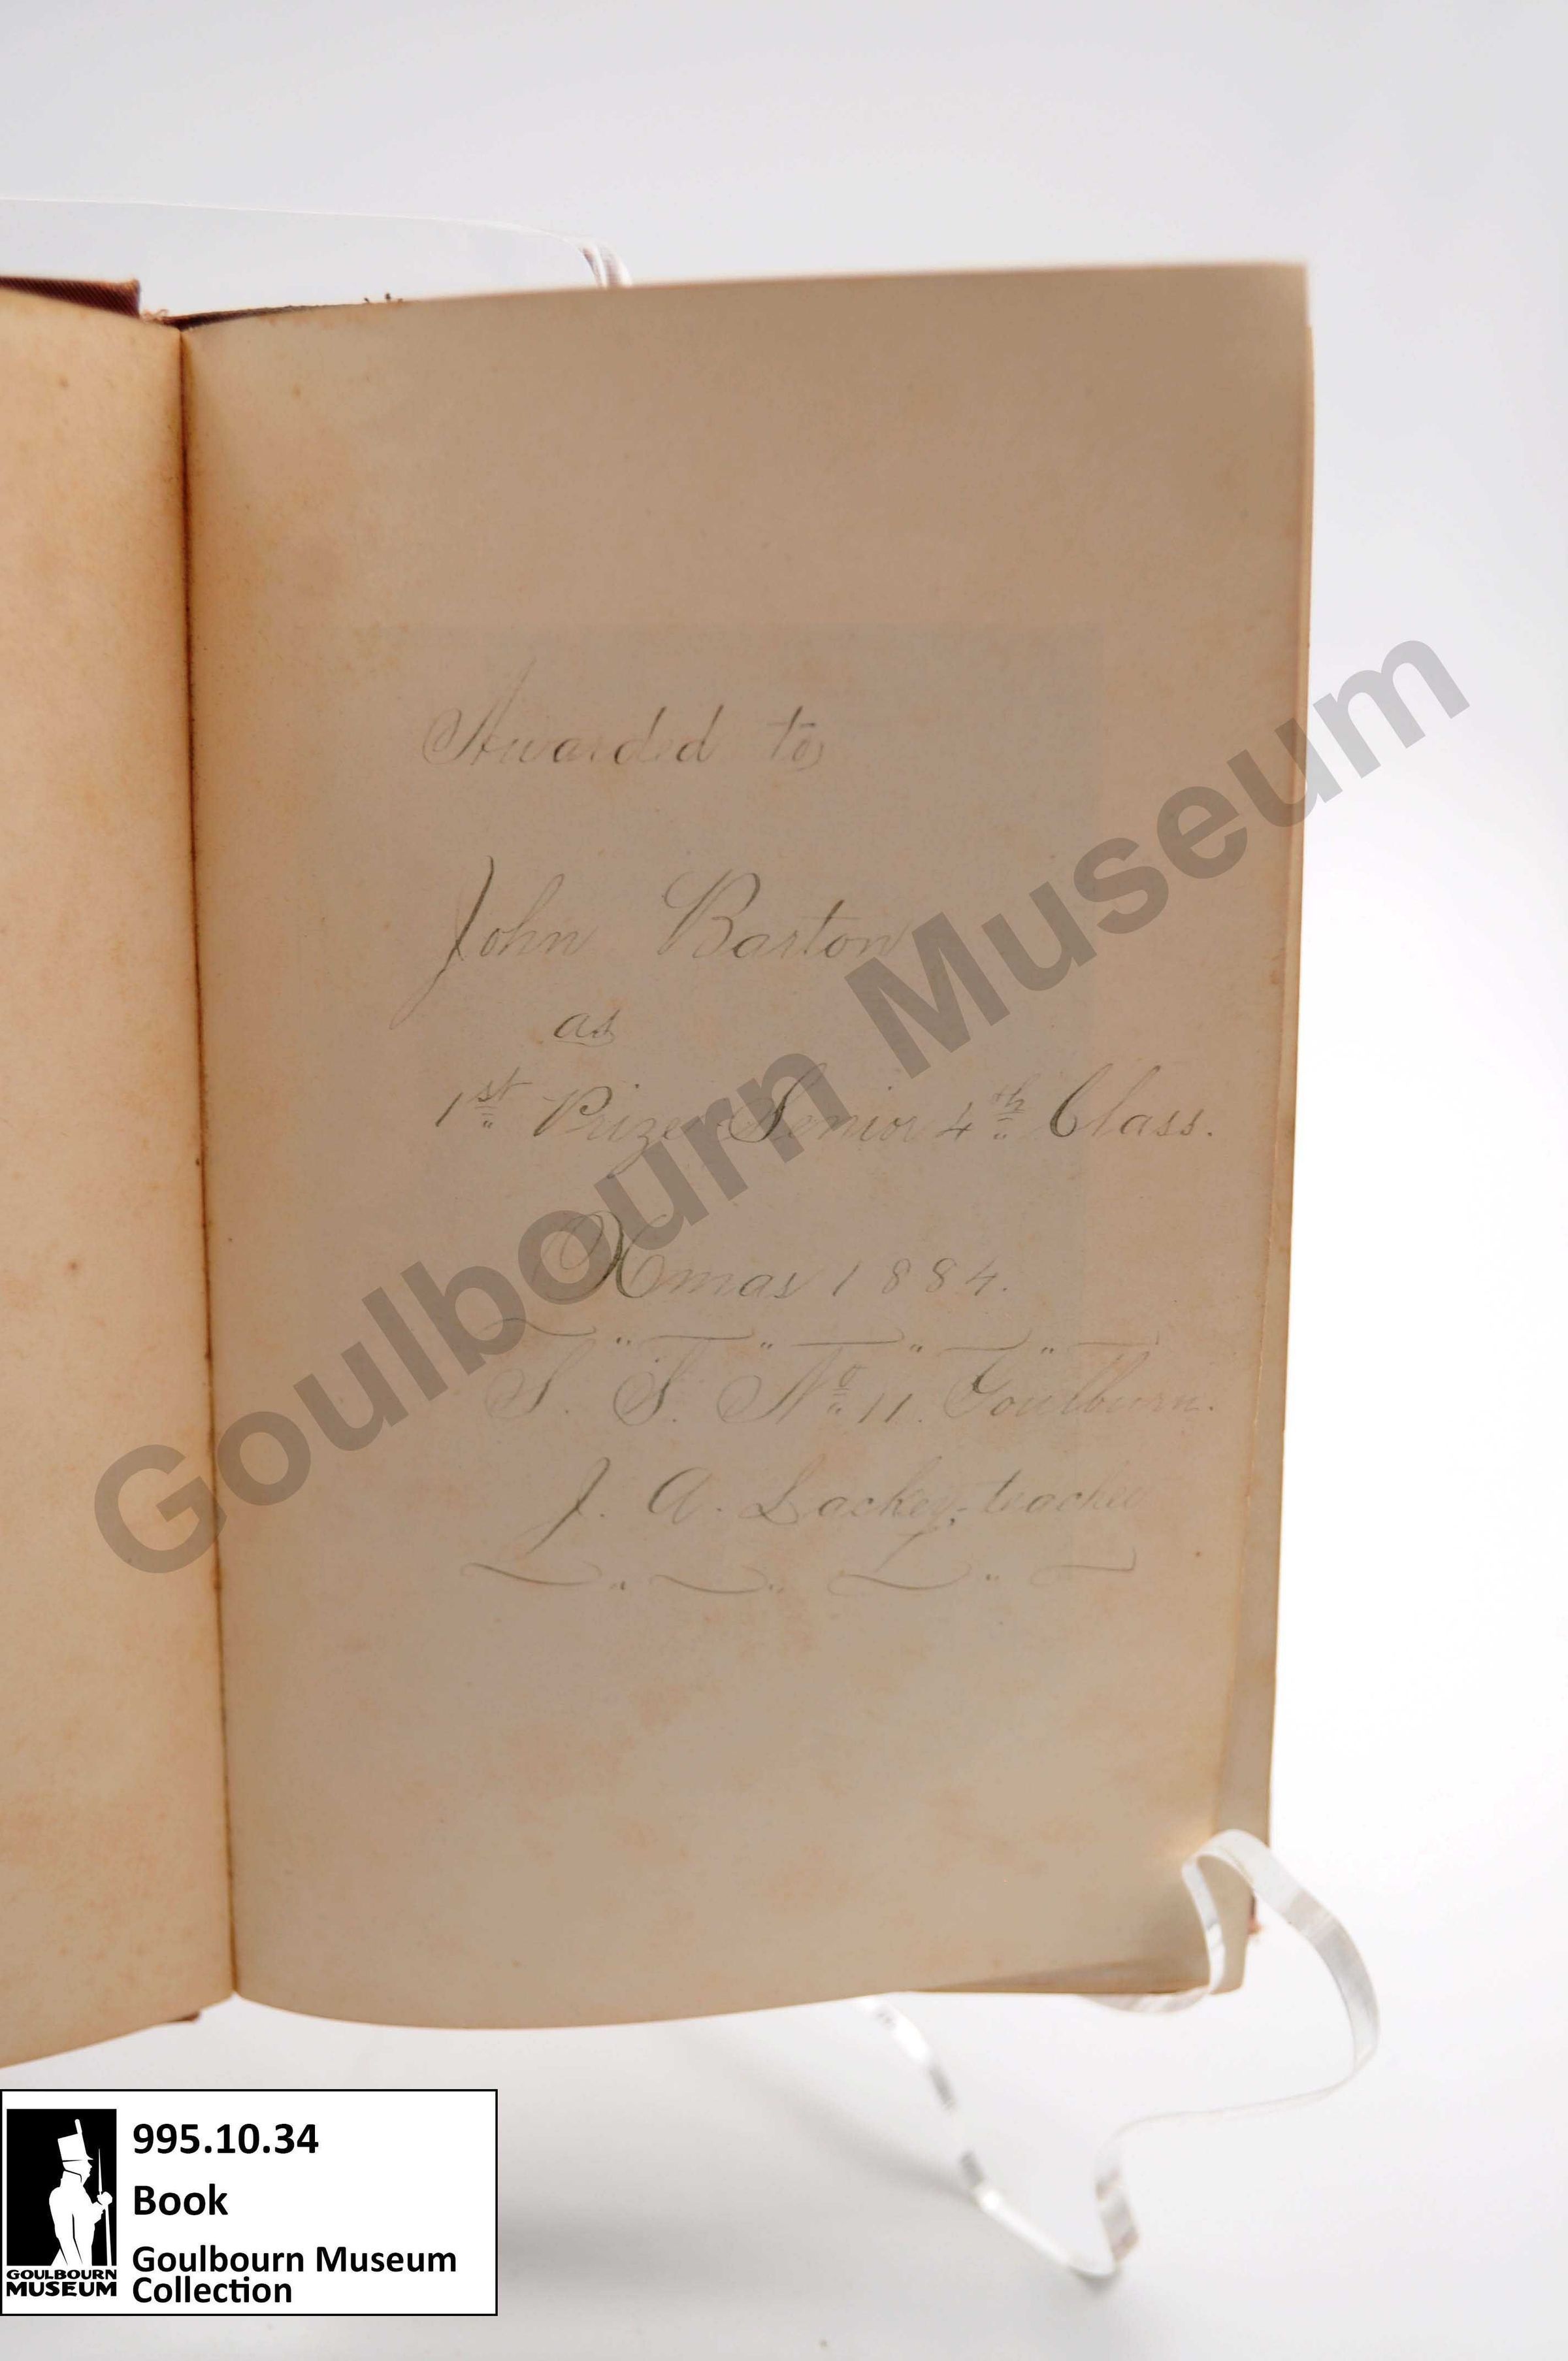 Awarded to
John Barton
as
1st Prize Senior 4th Class.
Xmas 1884.
S. S. No 11. Goulburn.
J. A. Lackey, teacher
Goulbourn Museum
995.10.34
Book
Goulbourn Museum
Collection
GOULBOURN
MUSEUM